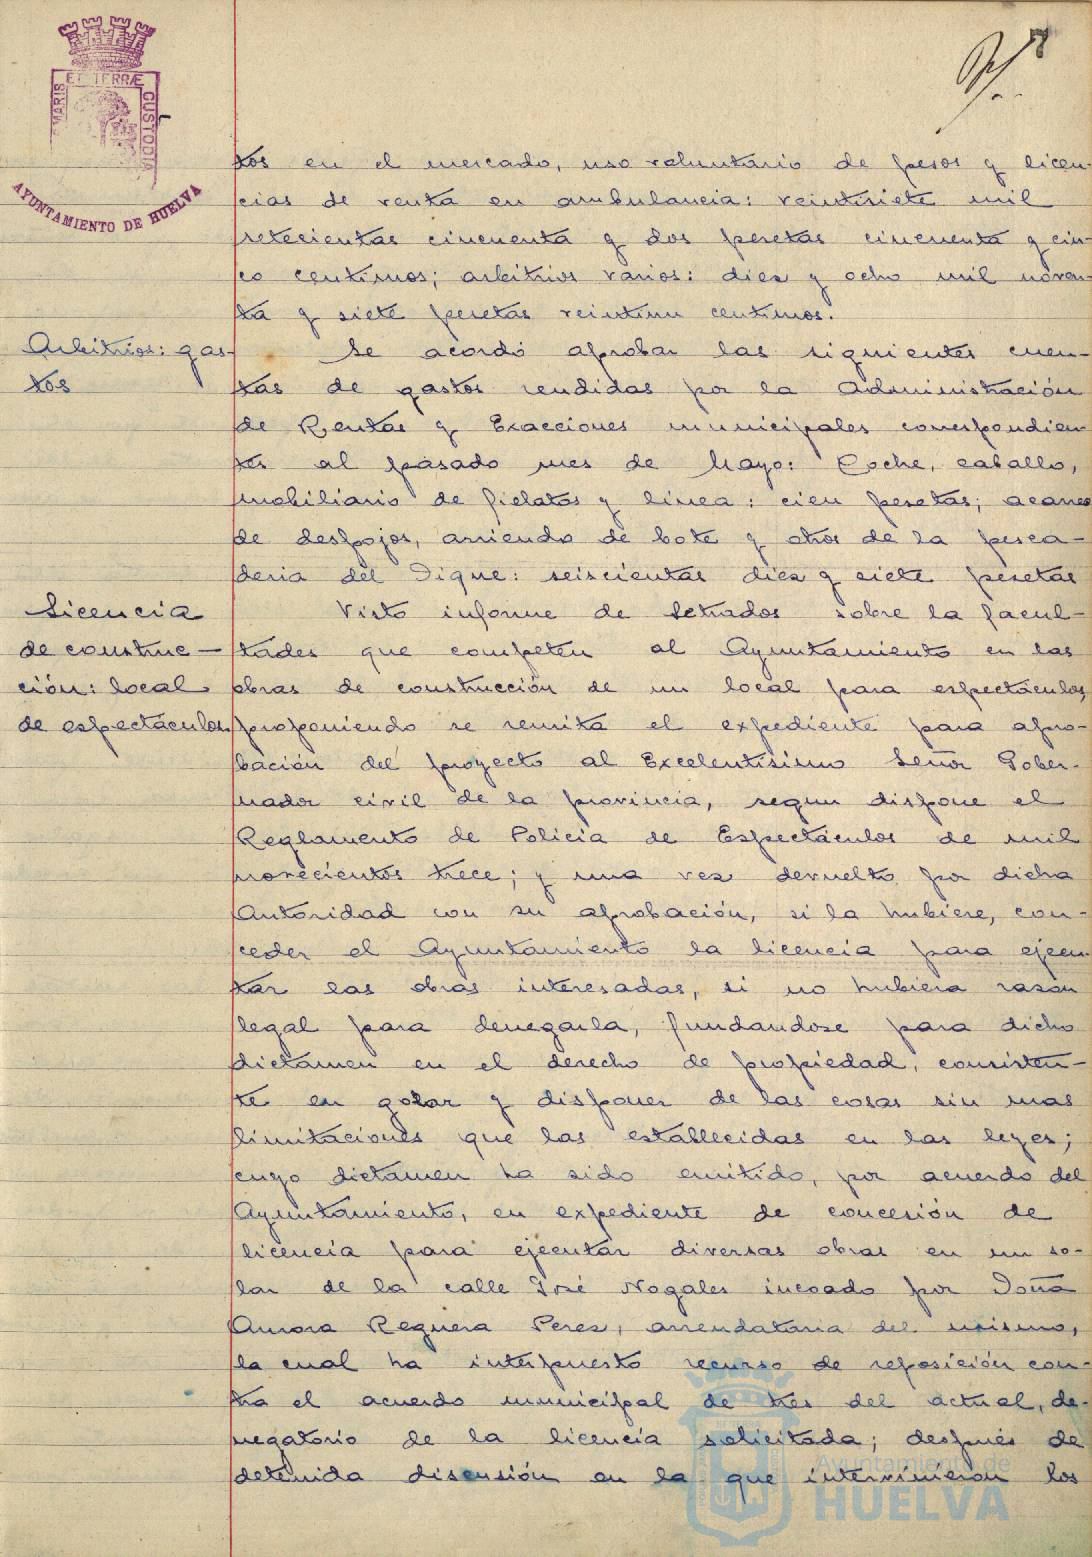 MARIS ET TERRÆ CUSTODIA
AYUNTAMIENTO DE HUELVA
tos en el mercado, uso voluntario de pesos y licen-
cias de venta en ambulancia: veintisiete mil
setecientas cincuenta y dos pesetas cincuenta y cin-
co centimos; arbitrios varios: diez y ocho mil noven-
ta y siete pesetas veintiun centimos.
Arbitrios: gas-
tos
Se acordó aprobar las siguientes cuen-
tas de gastos rendidas por la Administración
de Rentas y Exacciones municipales correspondien
tes al pasado mes de Mayo: Coche, caballo,
mobiliario de fielatos y linea: cien pesetas; acarreo
de despojos, arriendo de bote y otros de la pesca-
deria del Dique: seiscientas diez y siete pesetas
Licencia
de construc-
ción: local
de espectáculos
Visto informe de Letrados sobre la facul-
tades que competen al Ayuntamiento en las
obras de construcción de un local para espectáculos,
proponiendo se remita el expediente para apro-
bación del proyecto al Excelentísimo Señor Gober-
nador civil de la provincia, segun dispone el
Reglamento de Policía de Espectáculos de mil
novecientos trece; y una vez devuelto por dicha
Autoridad con su aprobación, si la hubiere, con-
ceder el Ayuntamiento la licencia para ejecu
tar las obras interesadas, si no hubiera razón
legal para denegarla, fundandose para dicho
dictamen en el derecho de propiedad, consisten-
te en gozar y disponer de las cosas sin mas
limitaciones que las establecidas en las leyes;
cuyo dictamen ha sido emitido, por acuerdo del
Ayuntamiento, en expediente de concesión de
licencia para ejecutar diversas obras en un so-
lar de la calle José Nogales incoado por Doña
Aurora Requera Perez, arrendataria del mismo,
la cual ha interpuesto recurso de reposición con-
tra el acuerdo municipal de tres del actual, de-
negatorio de la licencia solicitada; después de
detenida discusión en la que intervinieron los
Ayuntamiento de
HUELVA